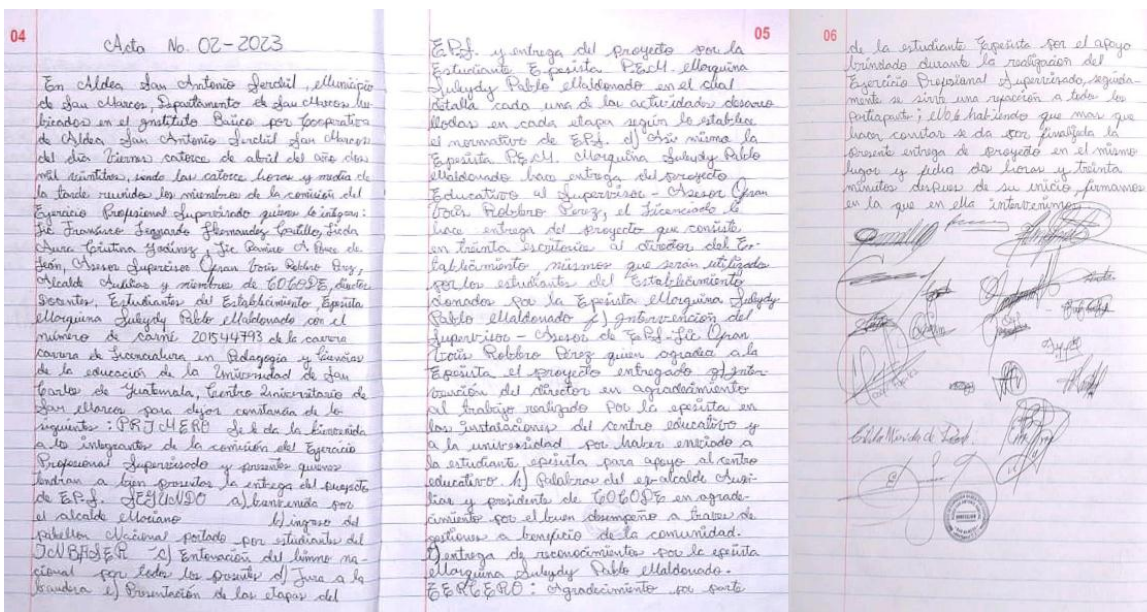 04
Acta No. 02-2023
En Aldea San Antonio Serchil, Municipio
de San Marcos, Departamento de San Marcos u-
bicados en el Instituto Básico por Cooperativa
de Aldea San Antonio Serchil San Marcos
del día Viernes catorce de abril del año dos
mil veintitres, siendo las catorce horas y media de
la tarde reunidos los miembros de la comisión del
Ejercicio Profesional Supervisado quienes lo integran:
Lic Francisco Leonardo Hernandez Castillo, Licda
Aura Cristina Godinez, Lic Ramiro A Ponce de
León, Asesor Supervisor Ofran Voris Roblero Perez,
Alcalde Auxiliar y miembros de COCODE, director
Docentes, Estudiantes del Establecimiento, Epesista
Marquina Suleydy Pablo Maldonado con el
número de carné 201544793 de la carrera
carrera de Licenciatura en Pedagogía y Ciencias
de la educación de la Universidad de San
Carlos de Guatemala, Centro Universitario de
San Marcos para dejar constancia de lo
siguiente: PRIMERO Se le da la bienvenida
a los integrantes de la comisión del Ejercicio
Profesional Supervisado y presentes quienes
tendran a bien presentar la entrega del proyecto
de E.P.S. SEGUNDO a) bienvenida por
el alcalde b) ingreso del
pabellon Nacional portado por estudiantes del
c) Entonación del himno na-
cional por todos los presentes d) Jura a la
bandera e) Presentación de las etapas del
05
E.P.S. y entrega del proyecto por la
Estudiante Epesista P.E.M. Marquina
Suleydy Pablo Maldonado en el cual
detalla cada una de las actividades desarro
lladas en cada etapa según lo establece
el normativo de E.P.S. d) Asi mismo la
Epesista P.E.M. Marquina Suleydy Pablo
Maldonado hace entrega del proyecto
Educativo al Supervisor - Asesor Ofran
Voris Roblero Perez, el Licenciado le
hace entrega del proyecto que consiste
en treinta escritorios al director del Es-
tablecimiento, mismos que serán utilizados
por los estudiantes del Establecimiento
donados por la Epesista Marquina Suleydy
Pablo Maldonado f) Intervención del
Supervisor - Asesor de E.P.S - Lic Ofran
Voris Roblero Pérez quien agradece a la
Epesista el proyecto entregado g) Inter
vención del director en agradecimiento
al trabajo realizado por la epesista en
las instalaciones del centro educativo y
a la universidad por haber enviado a
la estudiante epesista para apoyo al centro
educativo h) Palabras del ex-alcalde Auxi-
liar y presidente de COCODE en agrade-
cimiento por el buen desempeño a traves de
gestiones a beneficio de la comunidad.
entrega de reconocimientos por la epesista
Marquina Suleydy Pablo Maldonado.
TERCERO: Agradecimiento por parte
06
de la estudiante Epesista por el apoyo
brindado durante la realización del
Ejercicio Profesional Supervisado, seguida-
mente se sirve una refacción a todos los
; No habiendo que mas que
hacer constar se da por finalizada la
presente entrega de proyecto en el mismo
lugar y fecha dos horas y treinta
minutos despues de su inicio, firmamos
en la que en ella intervenimos.